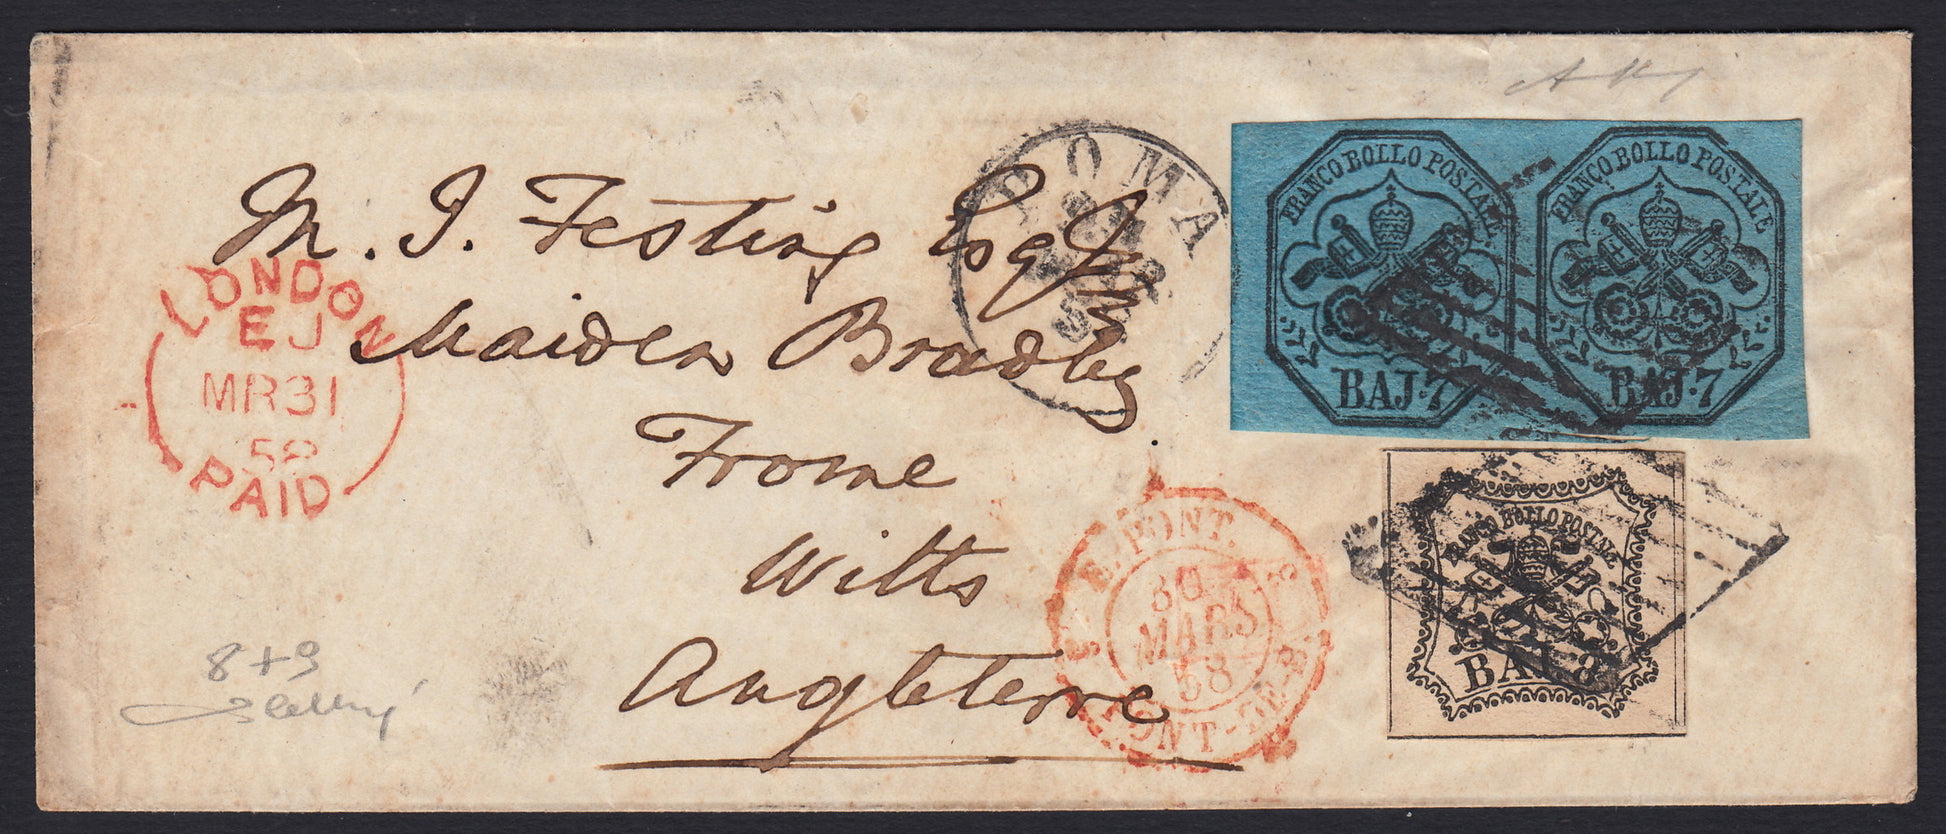 M. J. Festing Esqr
Maiden Bradley
Frome
Wilts
Angleterre
LONDON
EJ
MR31
58
PAID
ROMA
MAR
58
FRANCO BOLLO POSTALE
BAJ. 7
FRANCO BOLLO POSTALE
BAJ. 7
FRANCO BOLLO POSTALE
BAJ. 8
E. PONT.
30
MARS
58
PONT-DE-B
8+9